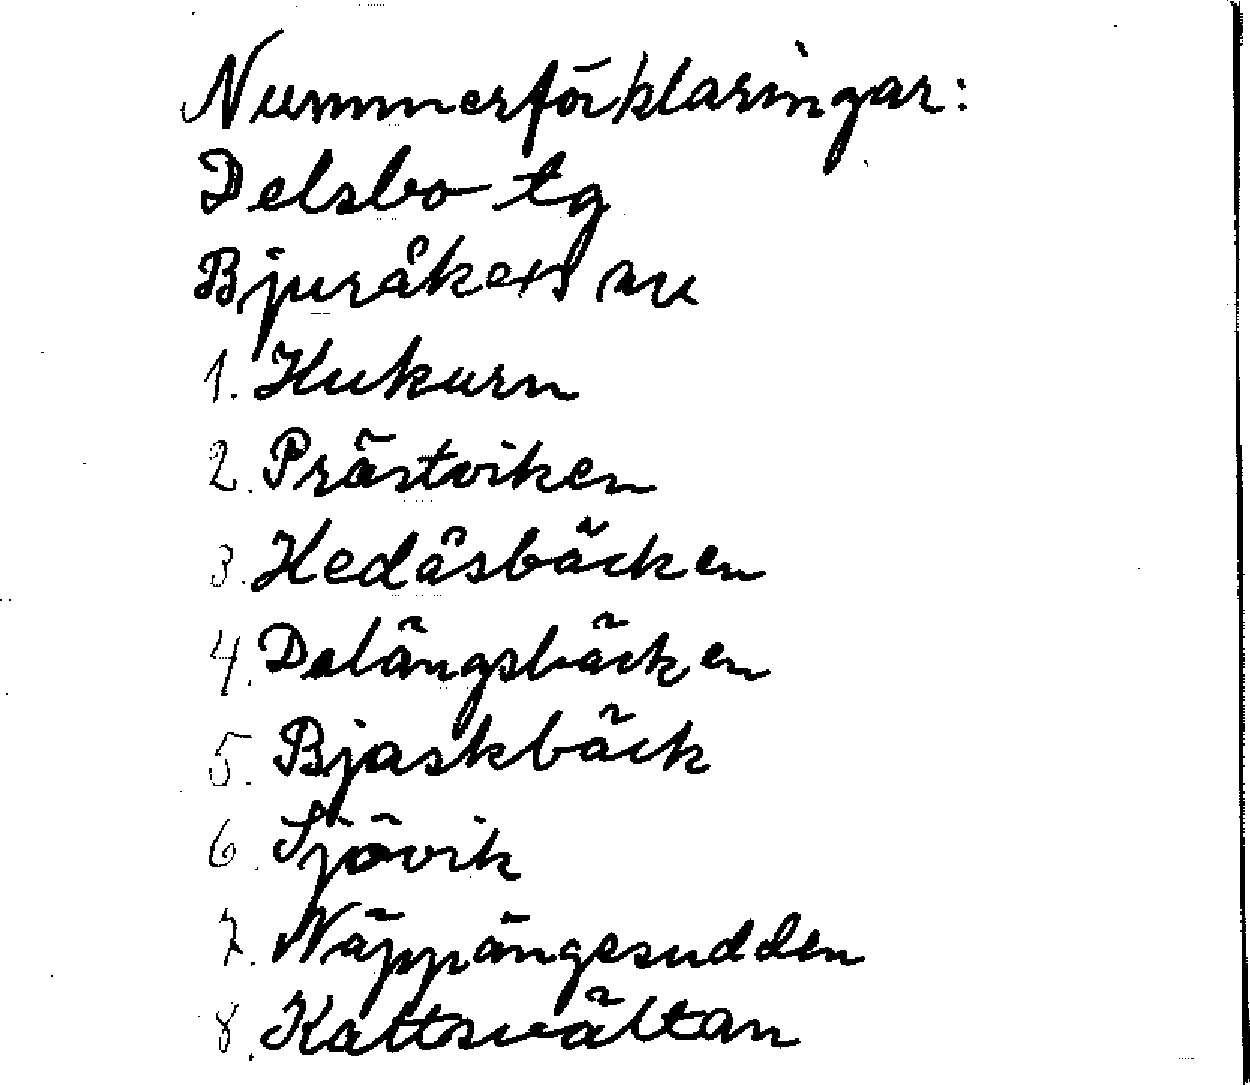 Nummerförklaringar:
Delsbo tg
Bjuråkers su
1. Kukurn
2. Prästviken
3. Hedåsbäcken
4. Delängsbäcken
5. Bjaskbäck
6. Sjövik
7. Näppängesudden
8. Kattsvältan